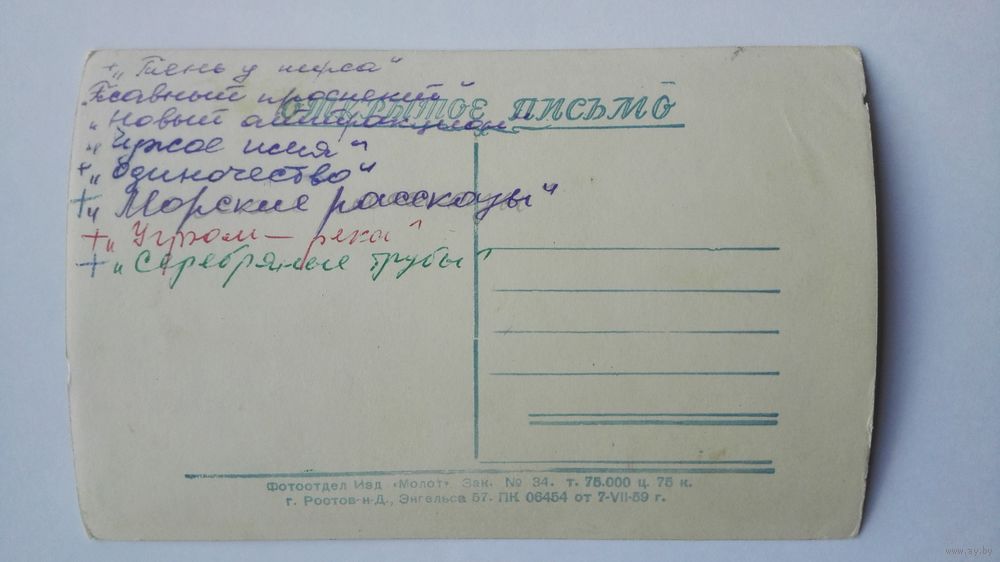 + „Тень у пирса"
„Главный проспект"
ОТКРЫТОЕ ПИСЬМО
„Новый аттракцион"
„Чужое имя"
+ „Одиночество"
+ „Морские рассказы"
+ „Угрюм – река"
+ „Серебряные трубы"
Фотоотдел Изд «Молот» Зак. № 34. т. 75.000 ц. 75 к.
г. Ростов-н-Д., Энгельса 57. ПК 06454 от 7-VII-59 г.
www.ay.by